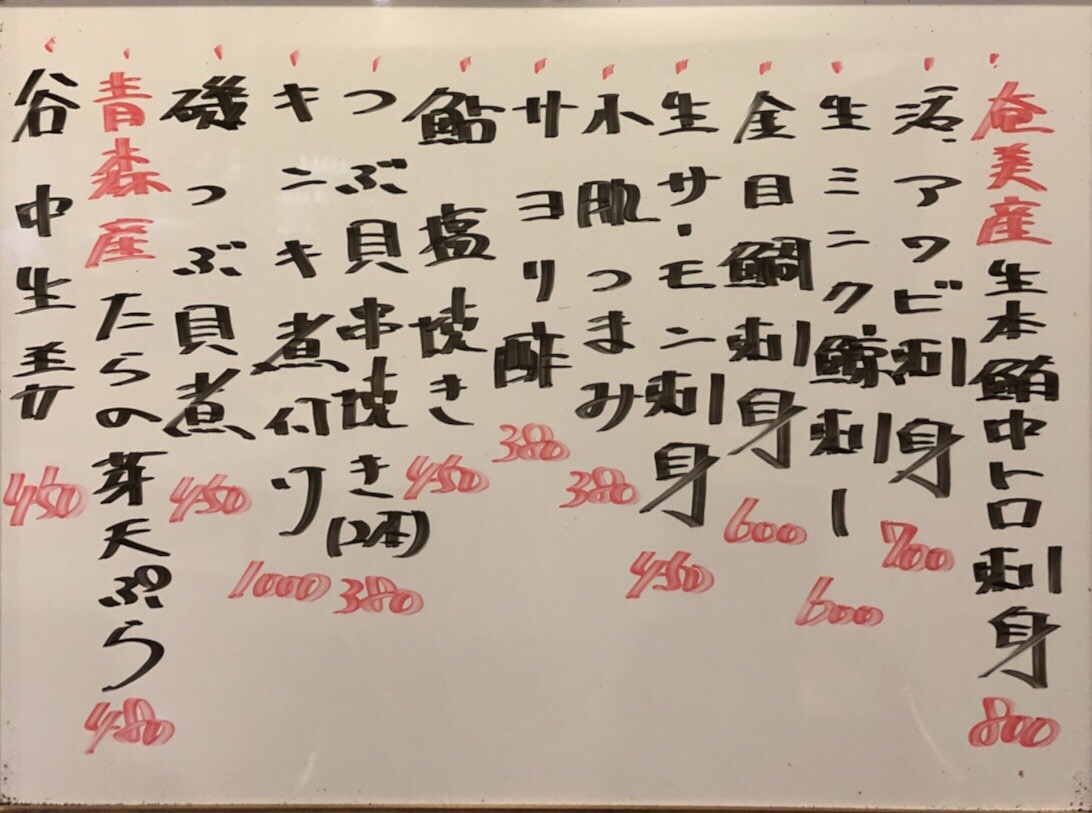 奄美産生本鮪中トロ刺身 800
活アワビ刺身 700
生ミンク鯨刺し 600
金目鯛刺身 600
生サーモン刺身 450
小肌つまみ 380
サヨリ酢 380
鮎塩焼き 450
つぶ貝串焼き(2本) 380
キンキ煮付け 1000
磯つぶ貝煮 450
青森産たらの芽天ぷら 480
谷中生姜 450